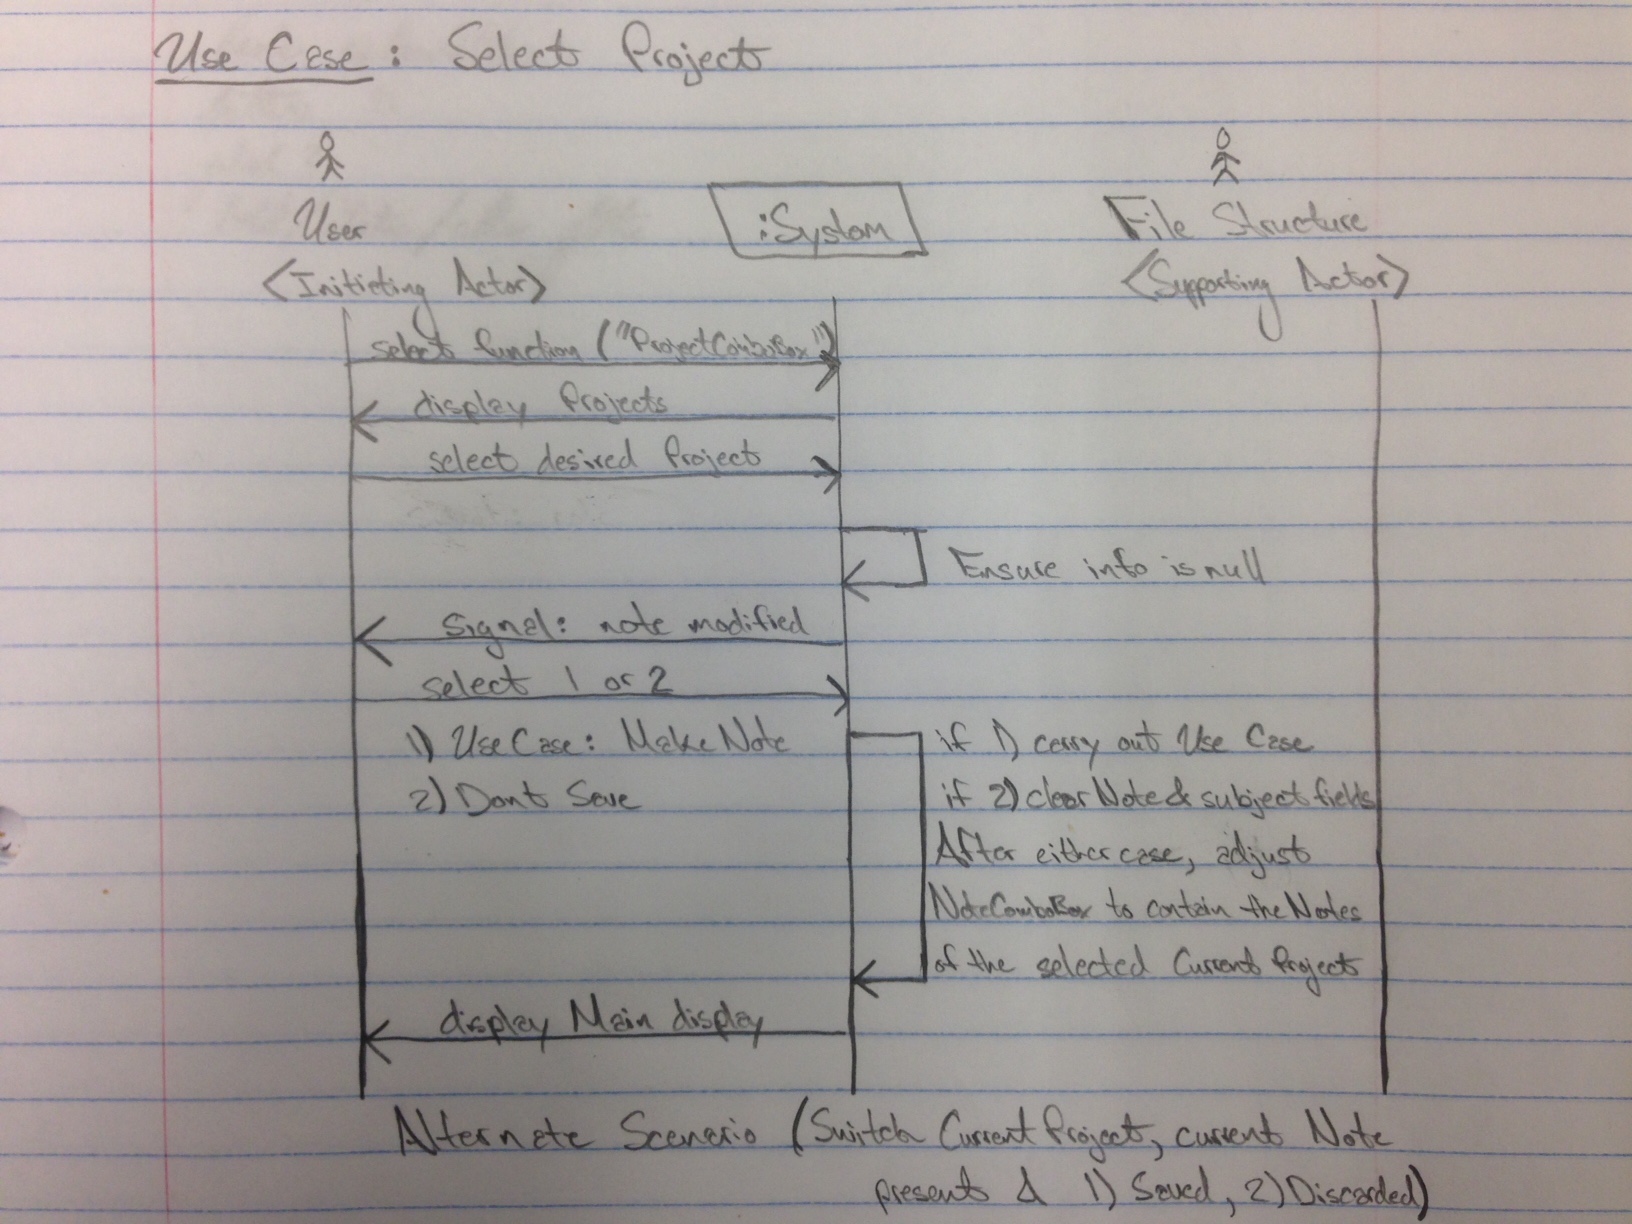 Use Case: Select Project
User
:System
File Structure
<Initiating Actor>
<Supporting Actor>
select function ("ProjectComboBox")
display Projects
select desired Project
Ensure info is null
Signal: note modified
select 1 or 2
1) Use Case: Make Note
if 1) carry out Use Case
2) Dont Save
if 2) clear Note & subject fields
After either case, adjust
NoteComboBox to contain the Notes
of the selected Current Project
display Main display
Alternate Scenario (Switch Current Project, current Note
present & 1) Saved, 2) Discarded)